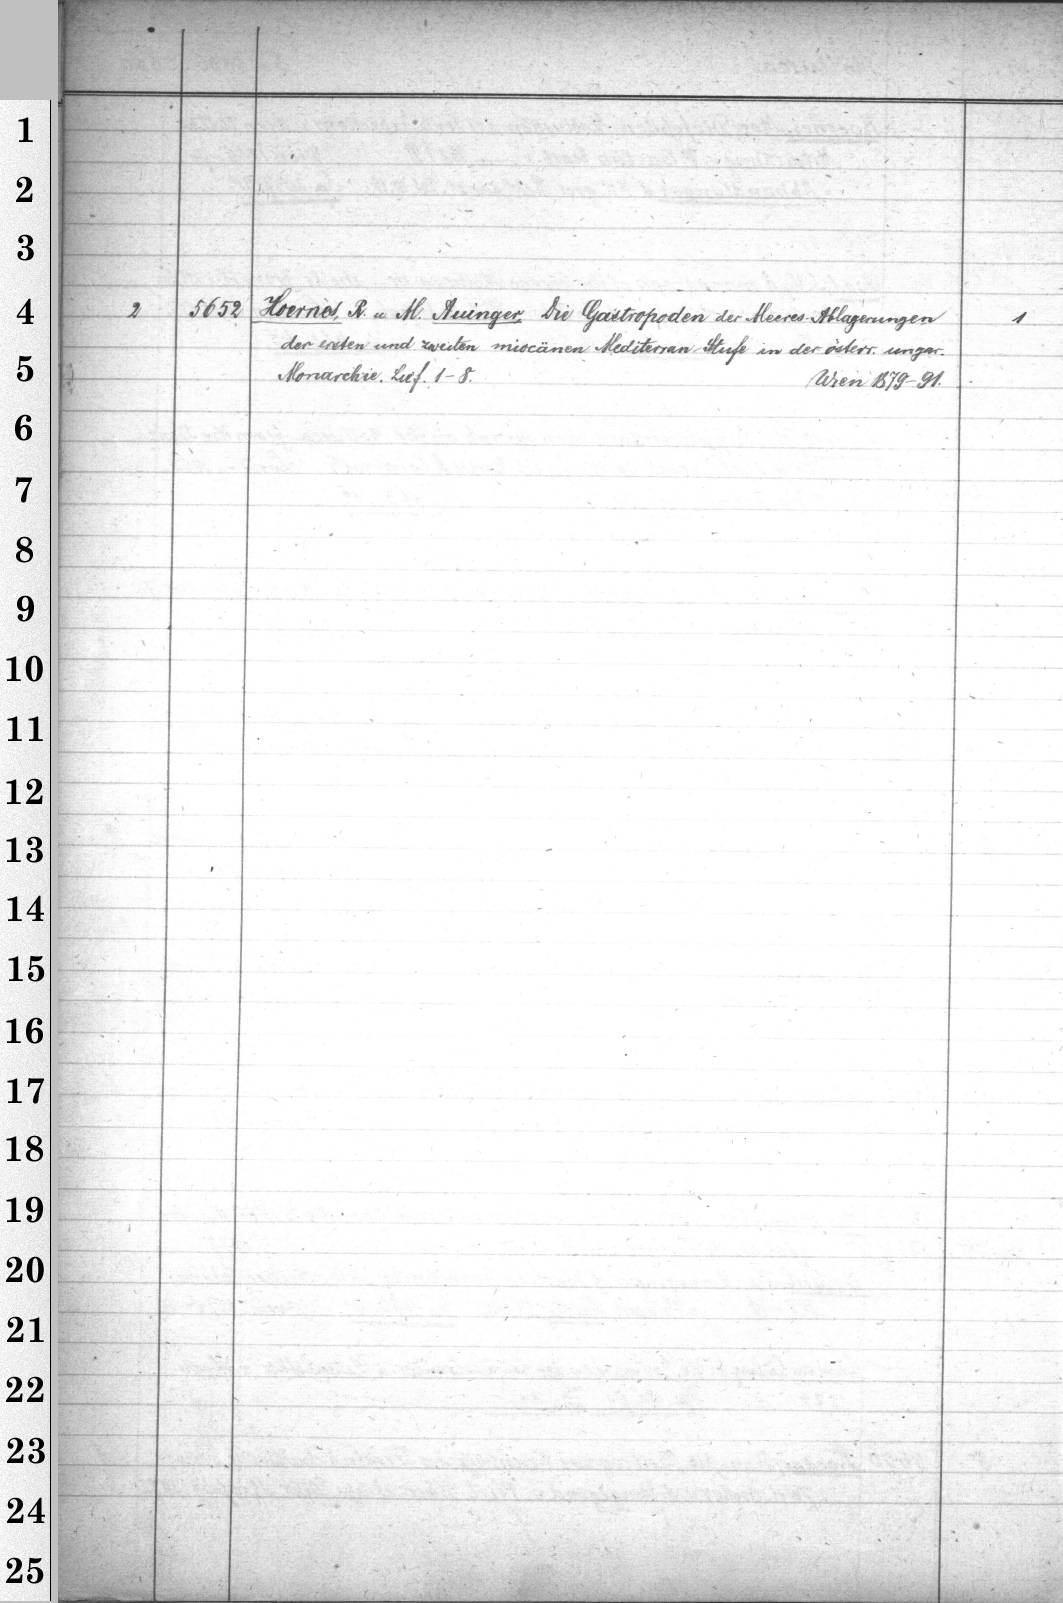 1
2
3
4 2 5652 Hoernes, R. u. M. Auinger. Die Gastropoden der Meeres-Ablagerungen 1
der ersten und zweiten miocänen Mediterran-Stufe in der österr. ungar.
5 Monarchie. Lief. 1-8. Wien 1879-91.
6
7
8
9
10
11
12
13
14
15
16
17
18
19
20
21
22
23
24
25